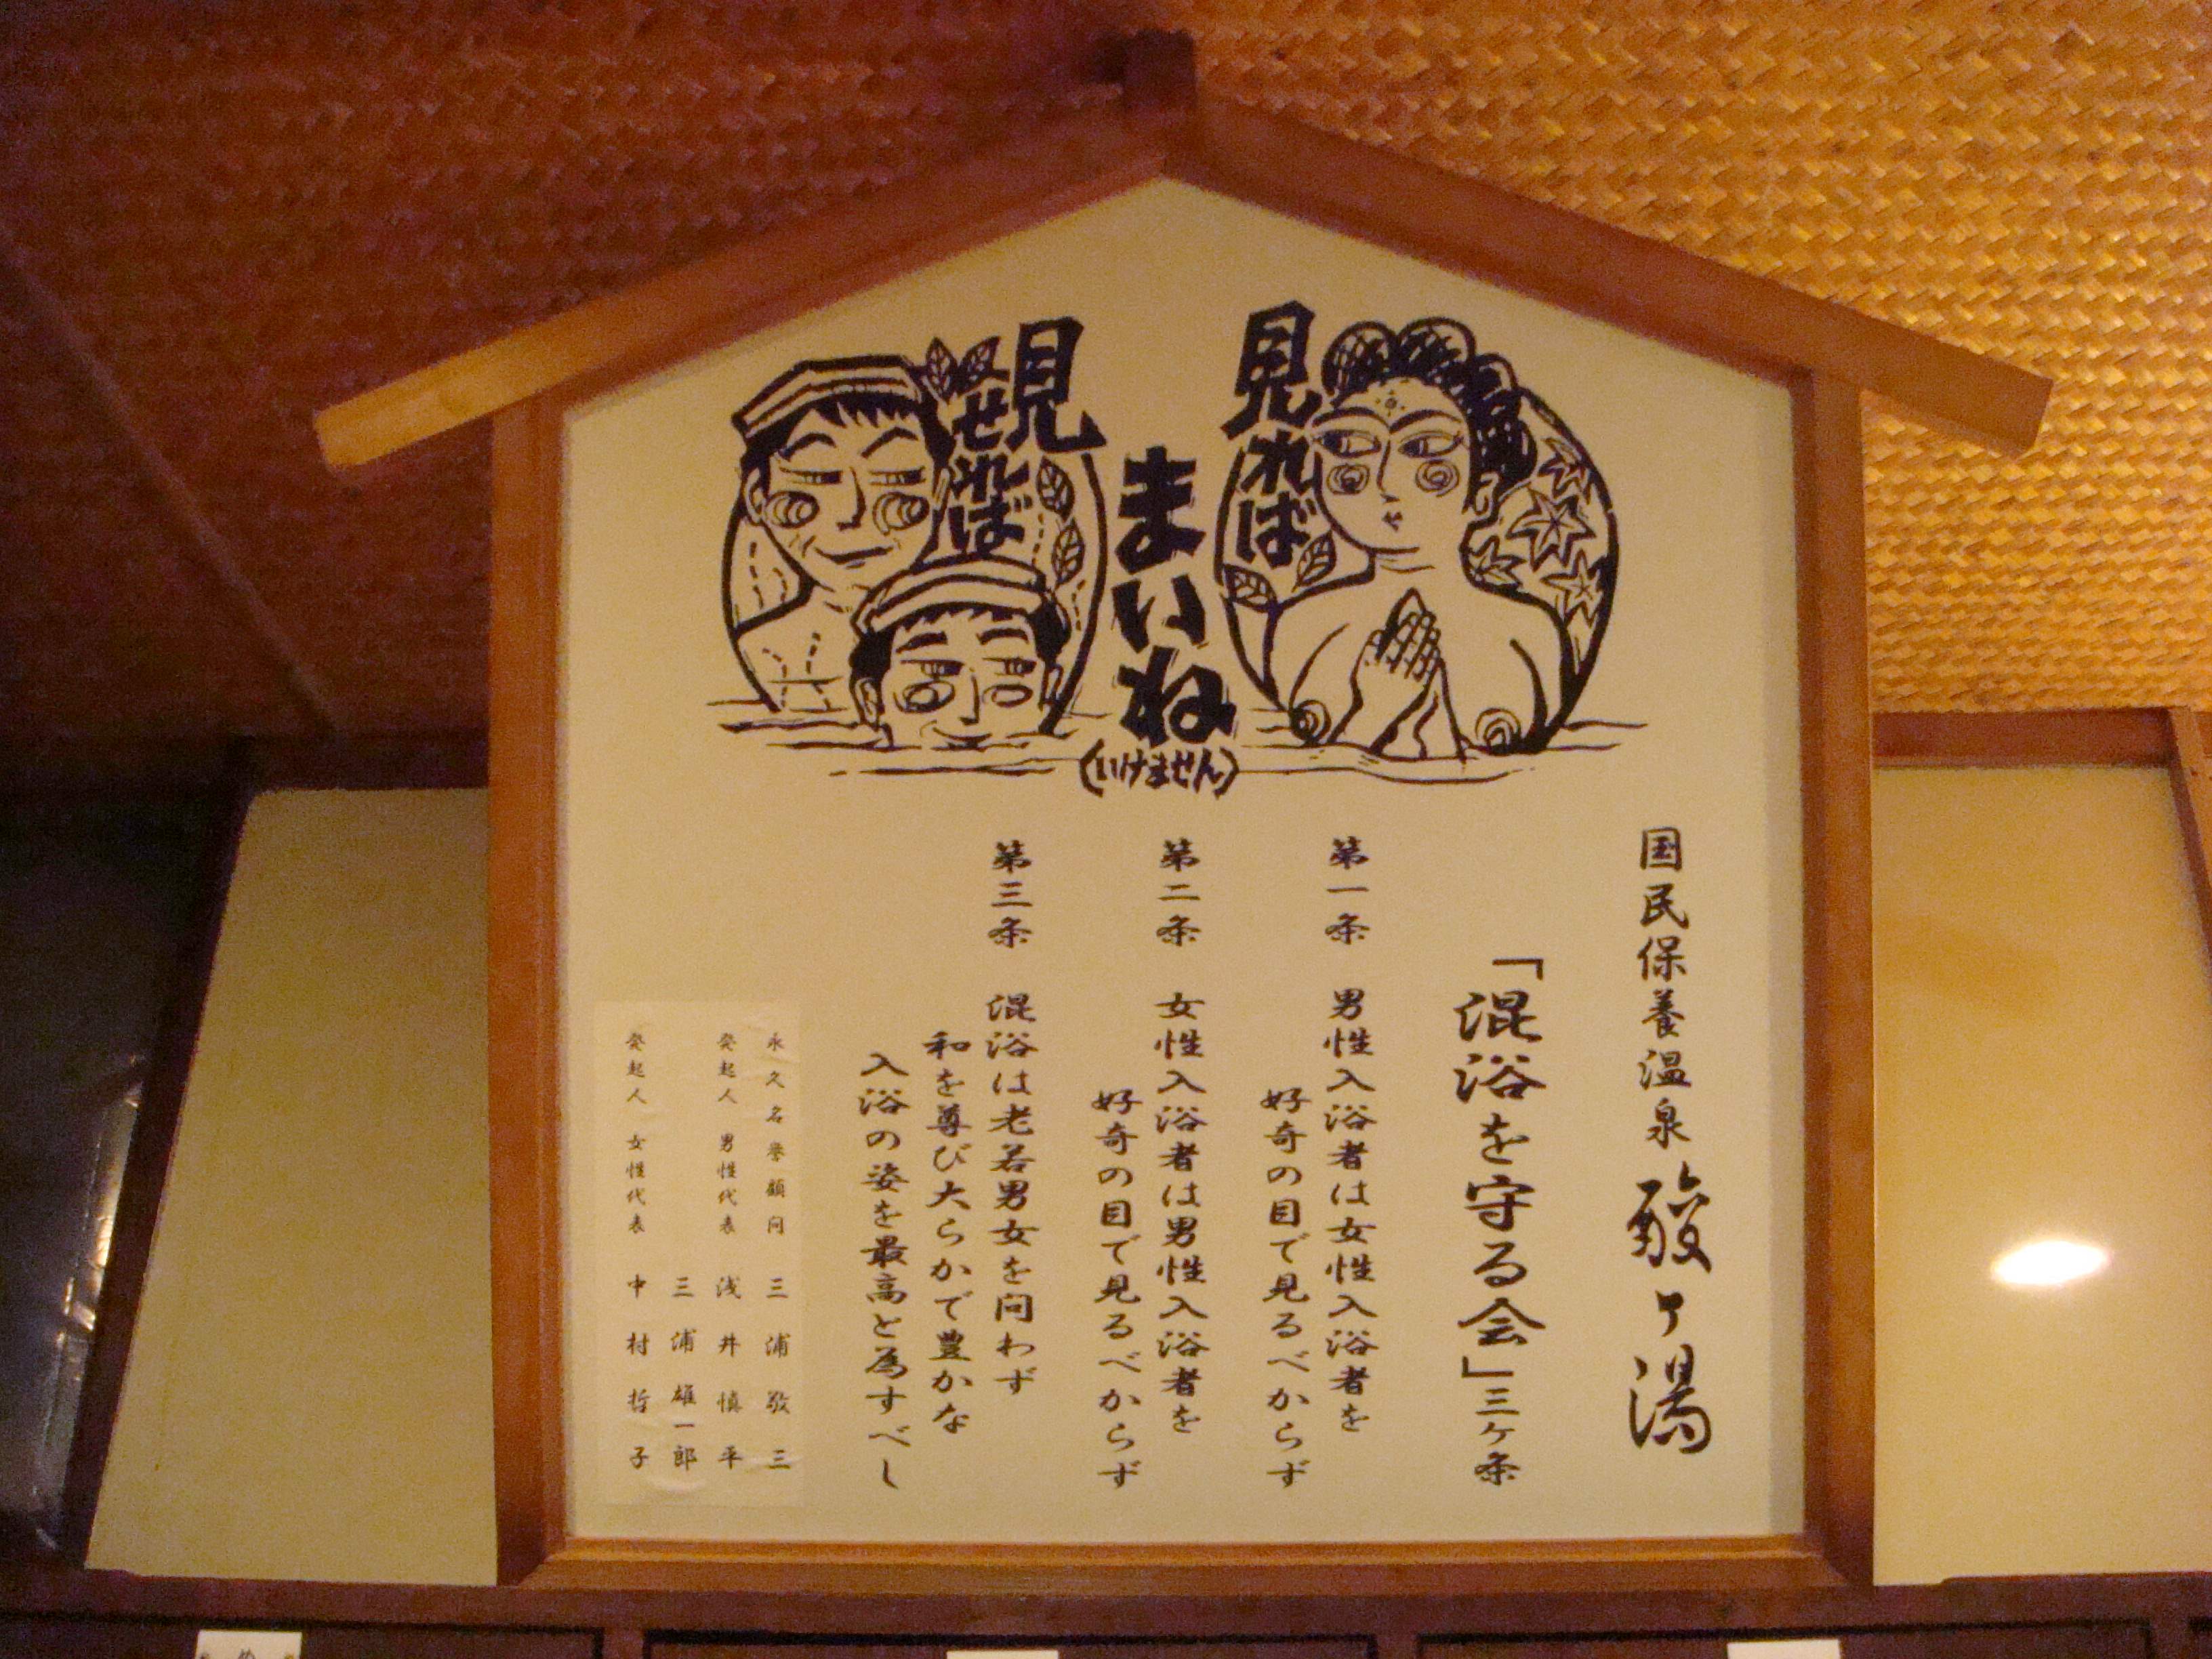 見れば
まいね
(いけません)
見せれば
国民保養温泉 酸ヶ湯
「混浴を守る会」三ケ条
第一条 男性入浴者は女性入浴者を
好奇の目で見るべからず
第二条 女性入浴者は男性入浴者を
好奇の目で見るべからず
第三条 混浴は老若男女を問わず
和を尊び大らかで豊かな
入浴の姿を最高と為すべし
永久名誉顧問 三浦敬三
発起人 男性代表 浅井慎平
三浦雄一郎
発起人 女性代表 中村哲子